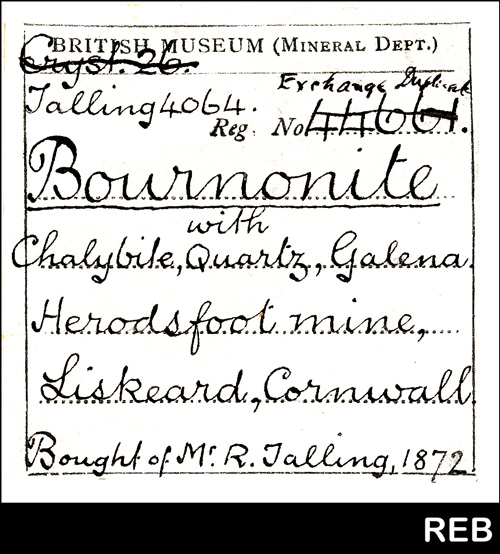 BRITISH MUSEUM (MINERAL DEPT.)
Cryst. 26.
Exchange Duplicate
Talling 4064.
Reg. No 44661.
Bournonite
with
Chalybite, Quartz, Galena.
Herodsfoot mine,
Liskeard, Cornwall.
Bought of Mr. R. Talling, 1872.
REB